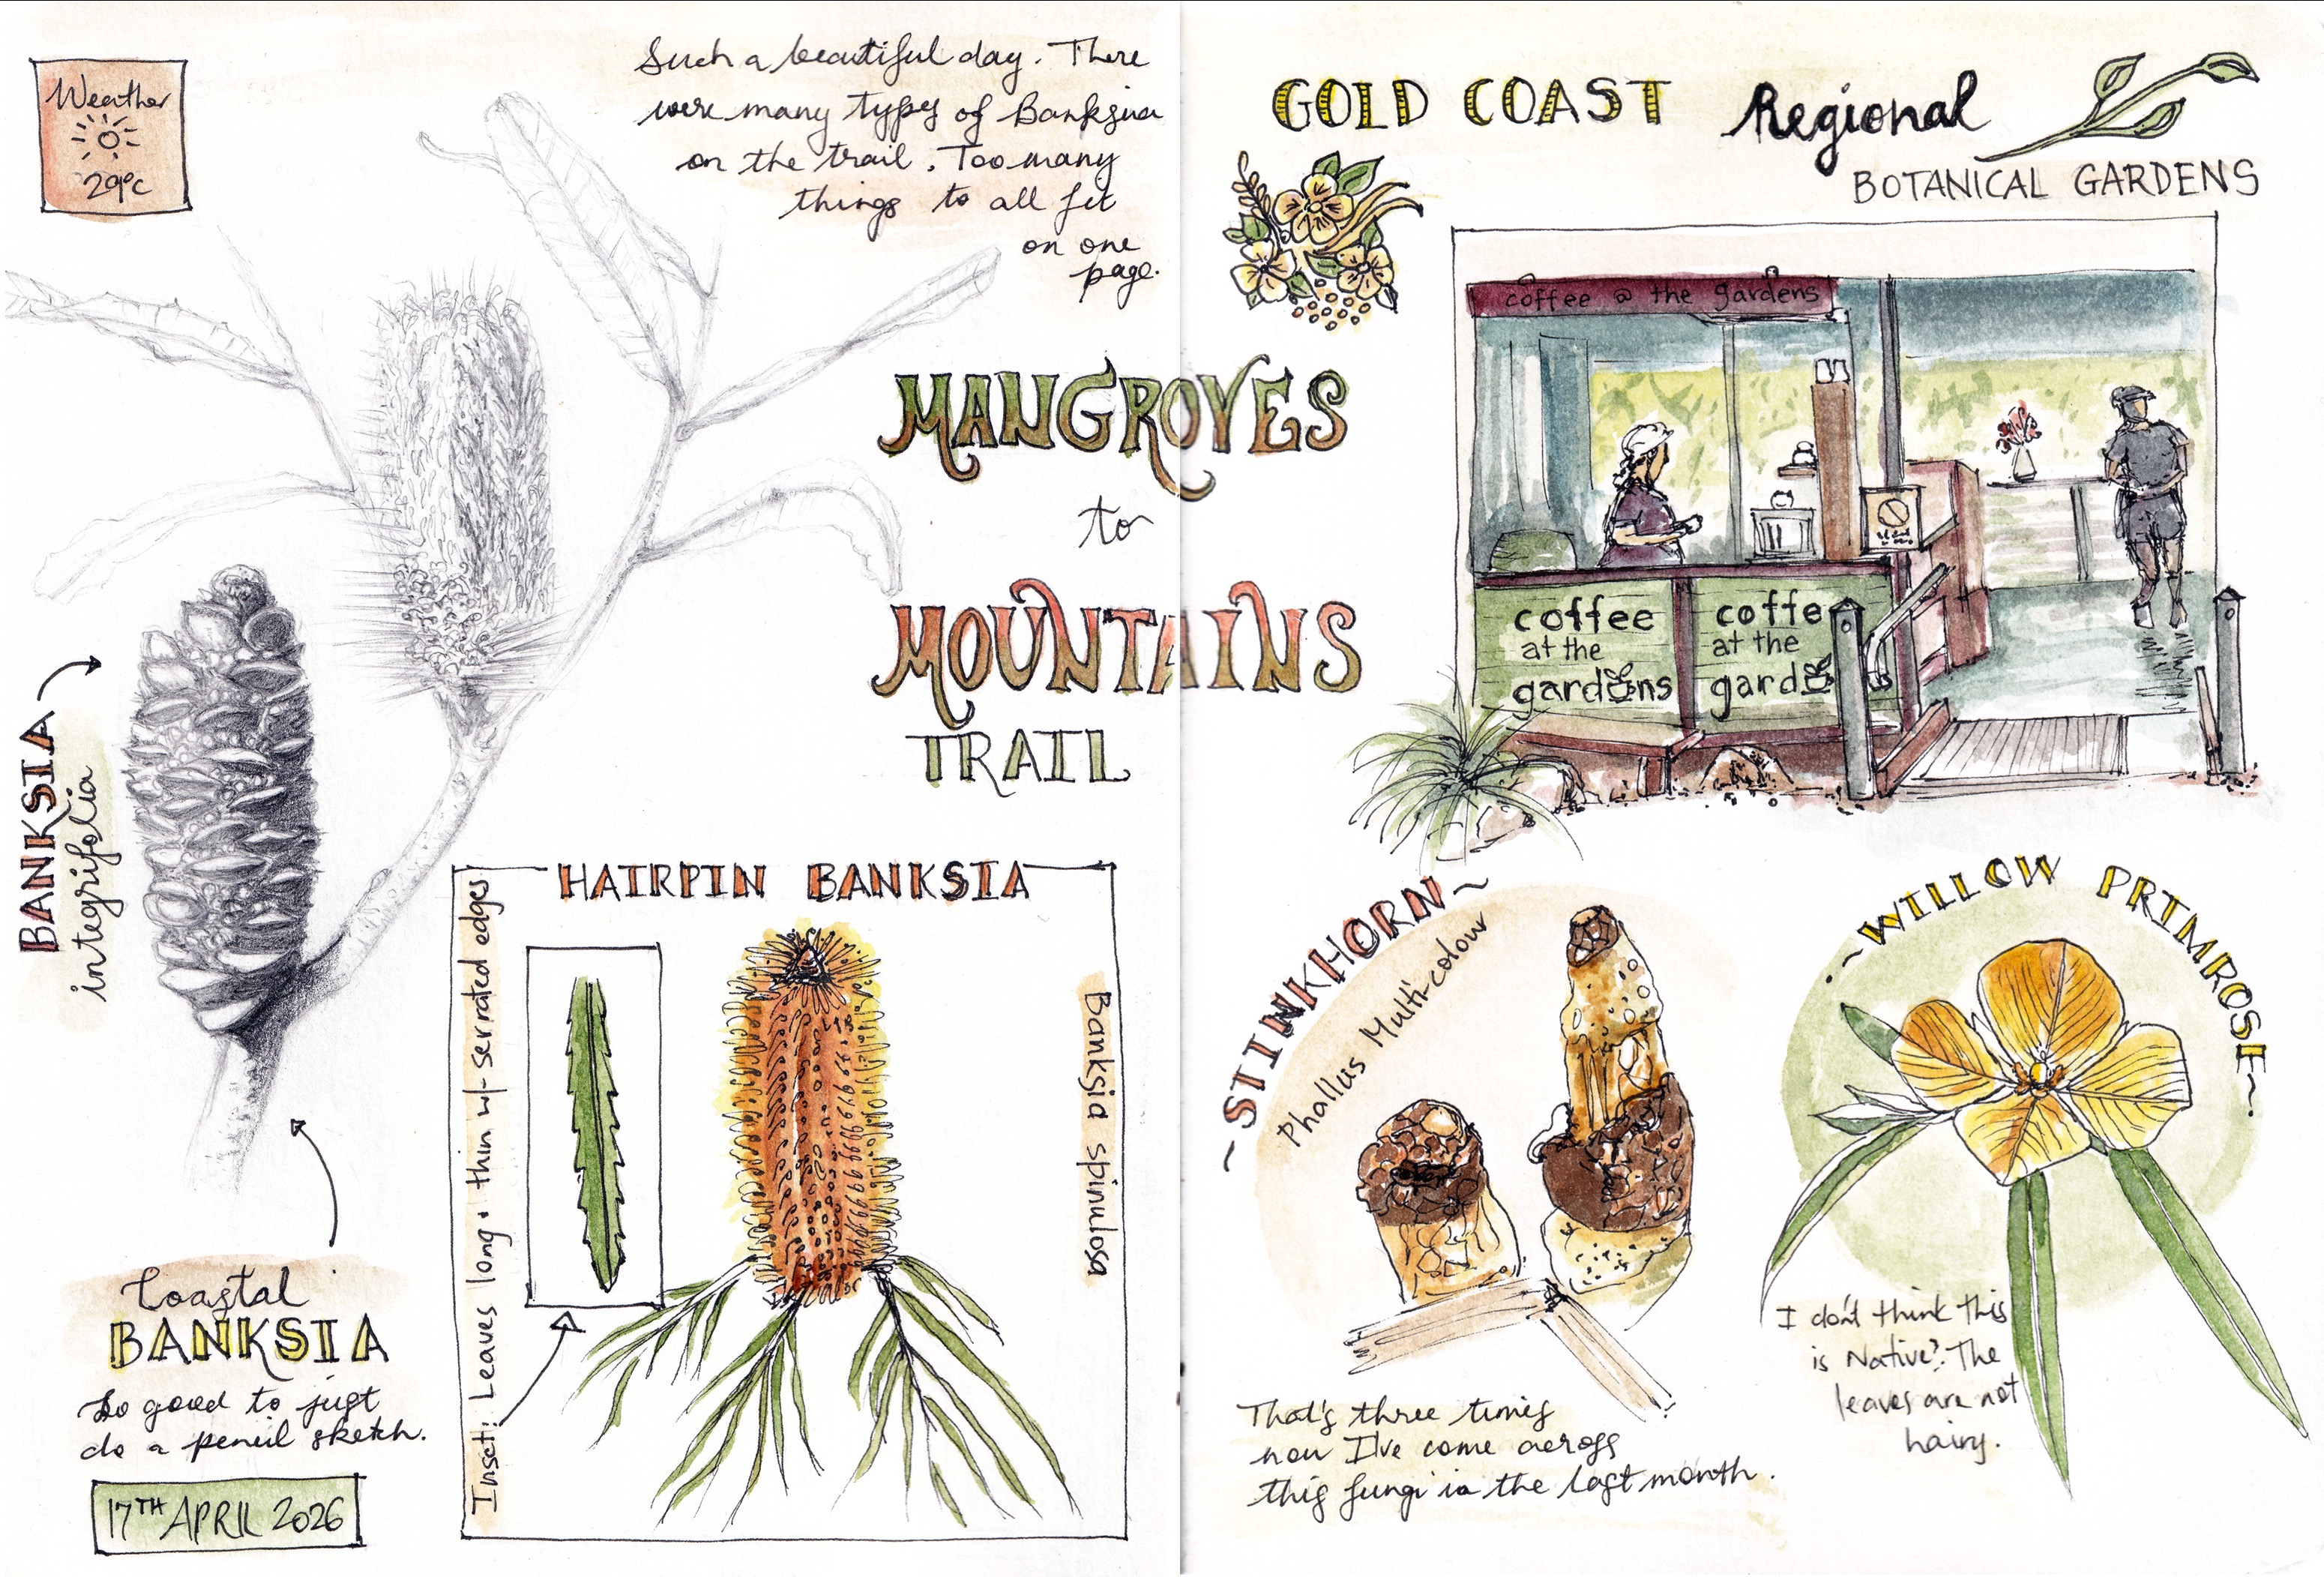 Weather
29°C
Such a beautiful day. There
were many types of Banksia
on the trail. Too many
things to all fit
on one
page.
MANGROVES
to
MOUNTAINS
TRAIL
BANKSIA
integrifolia
Coastal
BANKSIA
So good to just
do a pencil sketch.
17TH APRIL 2026
HAIRPIN BANKSIA
Inset: Leaves long + thin w/ serrated edges
Banksia spinulosa
GOLD COAST Regional
BOTANICAL GARDENS
coffee @ the gardens
coffee
at the
gardens
coffe
at the
garde
~STINKHORN~
Phallus Multi-colour
That's three times
now I've come across
this fungi in the last month.
~WILLOW PRIMROSE~
I don't think this
is Native? The
leaves are not
hairy.